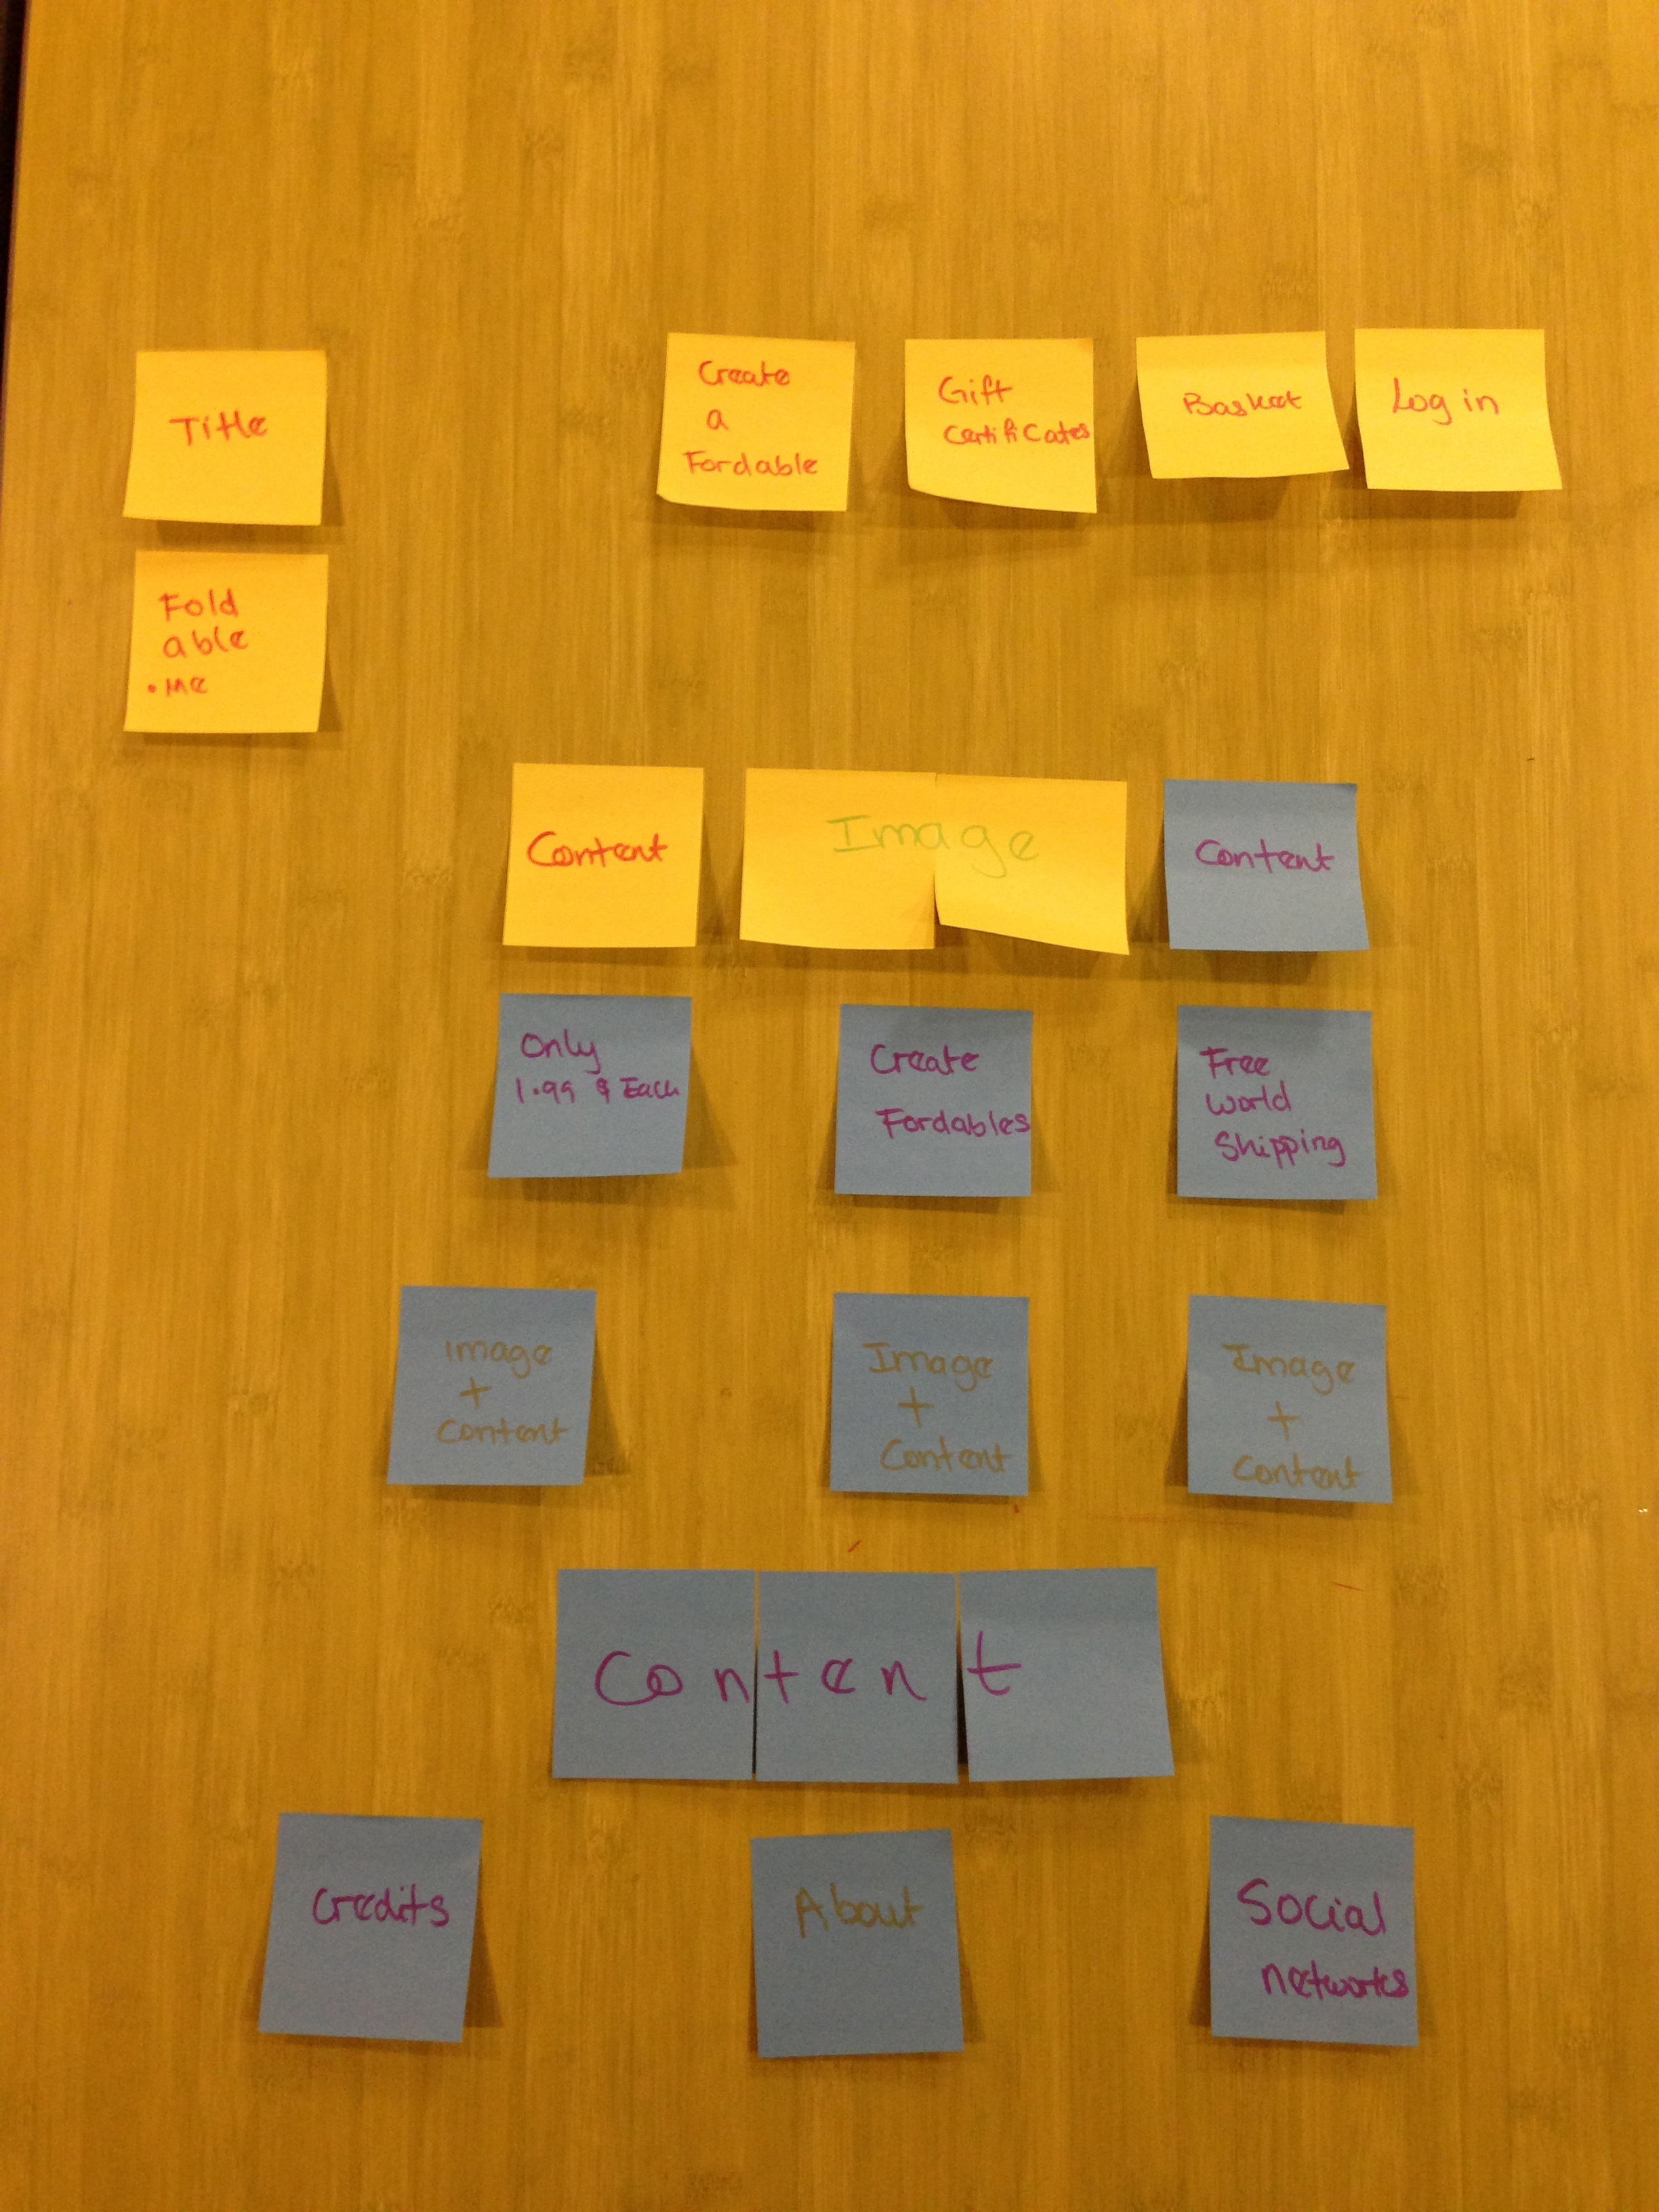 Title
Create
a
Fordable
Gift
Certificates
Basket
Log in
Fold
able
.Me
Content
Image
Content
Only
1.99 $ Each
Create
Fordables
Free
World
Shipping
Image
+
Content
Image
+
Content
Image
+
Content
Content
Credits
About
Social
networks